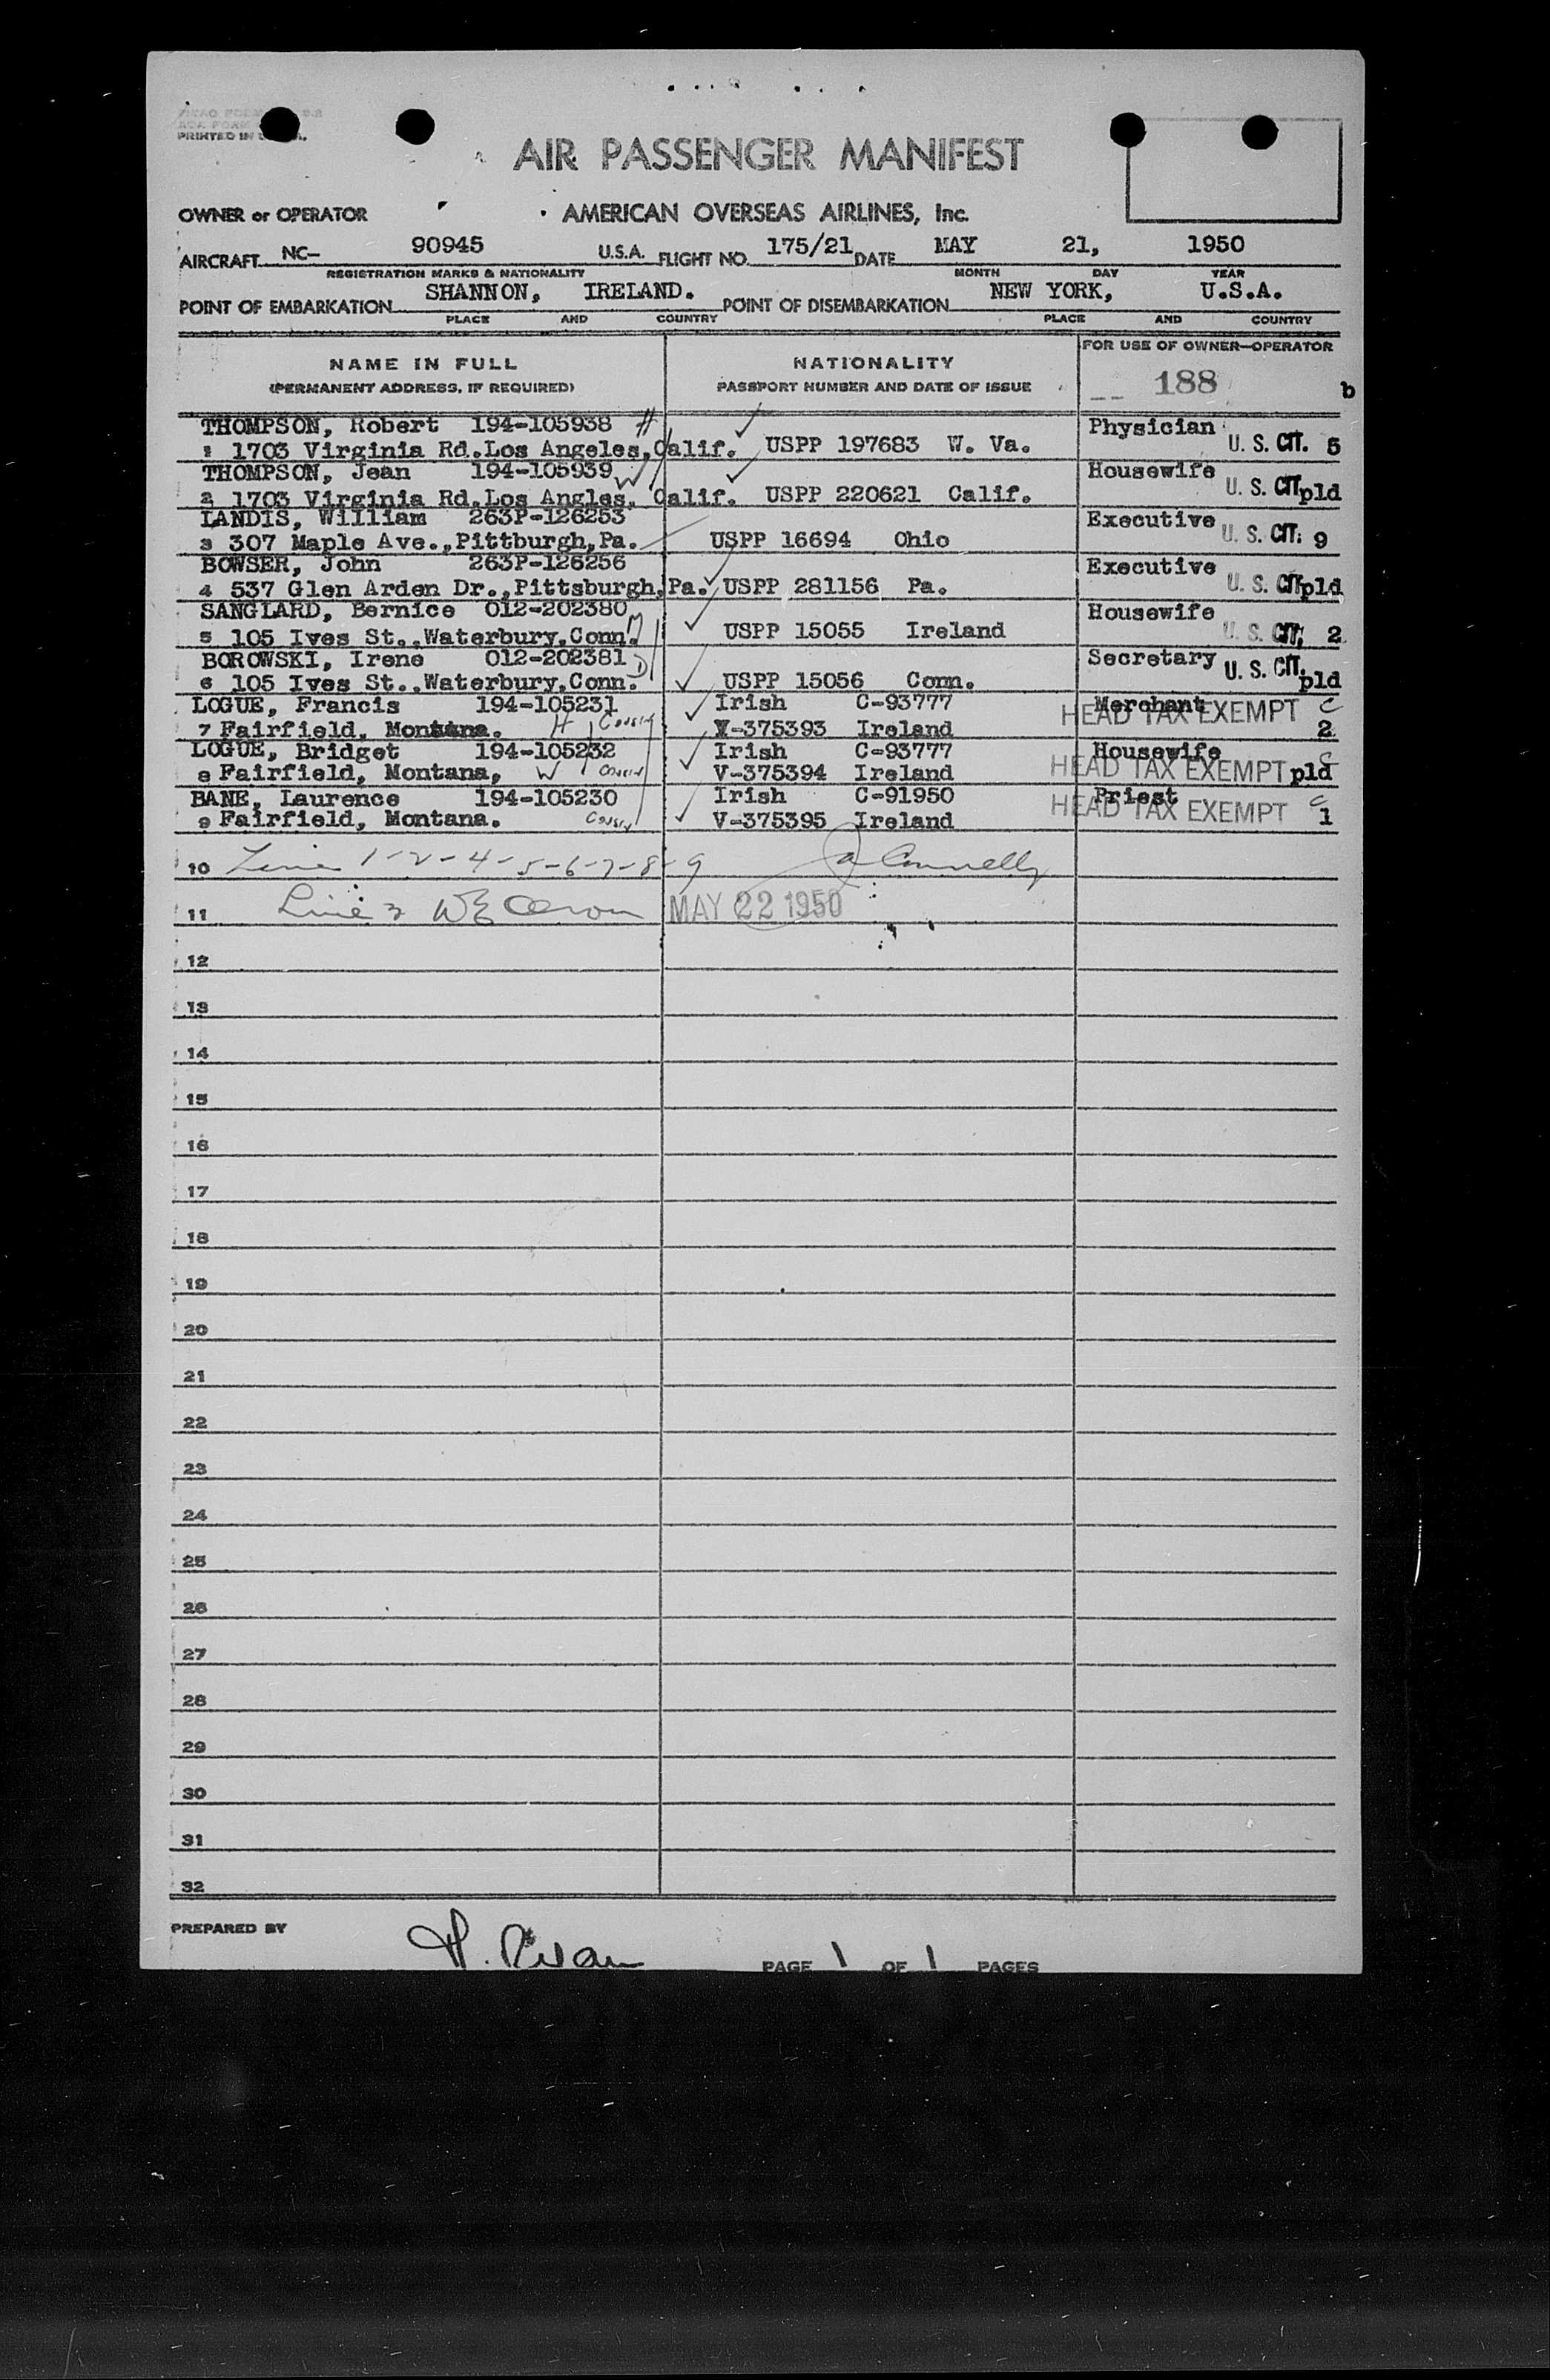 PRINTED IN U.S.A.
AIR PASSENGER MANIFEST
OWNER or OPERATOR AMERICAN OVERSEAS AIRLINES, Inc.
AIRCRAFT NC- 90945 U.S.A. FLIGHT NO. 175/21 DATE MAY 21, 1950
REGISTRATION MARKS & NATIONALITY MONTH DAY YEAR
POINT OF EMBARKATION SHANNON, IRELAND. POINT OF DISEMBARKATION NEW YORK, U.S.A.
PLACE AND COUNTRY PLACE AND COUNTRY
NAME IN FULL NATIONALITY FOR USE OF OWNER-OPERATOR
(PERMANENT ADDRESS, IF REQUIRED) PASSPORT NUMBER AND DATE OF ISSUE 188 b
THOMPSON, Robert 194-105938 H Physician
1 1703 Virginia Rd.Los Angeles,Calif. USPP 197683 W. Va. U. S. CIT. 5
THOMPSON, Jean 194-105939 W Housewife
2 1703 Virginia Rd.Los Angles, Calif. USPP 220621 Calif. U. S. CIT. pld
LANDIS, William 263P-126253 Executive
3 307 Maple Ave.,Pittburgh,Pa. USPP 16694 Ohio U. S. CIT. 9
BOWSER, John 263P-126256 Executive
4 537 Glen Arden Dr.,Pittsburgh,Pa. USPP 281156 Pa. U. S. CIT. pld
SANGLARD, Bernice 012-202380 M Housewife
5 105 Ives St.,Waterbury,Conn. USPP 15055 Ireland U. S. CIT. 2
BOROWSKI, Irene 012-202381 D Secretary
6 105 Ives St.,Waterbury,Conn. USPP 15056 Conn. U. S. CIT. pld
LOGUE, Francis 194-105231 Irish C-93777 Merchant C
7 Fairfield, Montana. H Cousin V-375393 Ireland HEAD TAX EXEMPT 2
LOGUE, Bridget 194-105232 Irish C-93777 Housewife C
8 Fairfield, Montana, W Cousin V-375394 Ireland HEAD TAX EXEMPT pld
BANE, Laurence 194-105230 Irish C-91950 Priest C
9 Fairfield, Montana. Cousin V-375395 Ireland HEAD TAX EXEMPT 1
10 Line 1-2-4-5-6-7-8-9 Connelly
11 Line 3 MAY 22 1950
12
13
14
15
16
17
18
19
20
21
22
23
24
25
26
27
28
29
30
31
32
PREPARED BY H.
PAGE 1 OF 1 PAGES